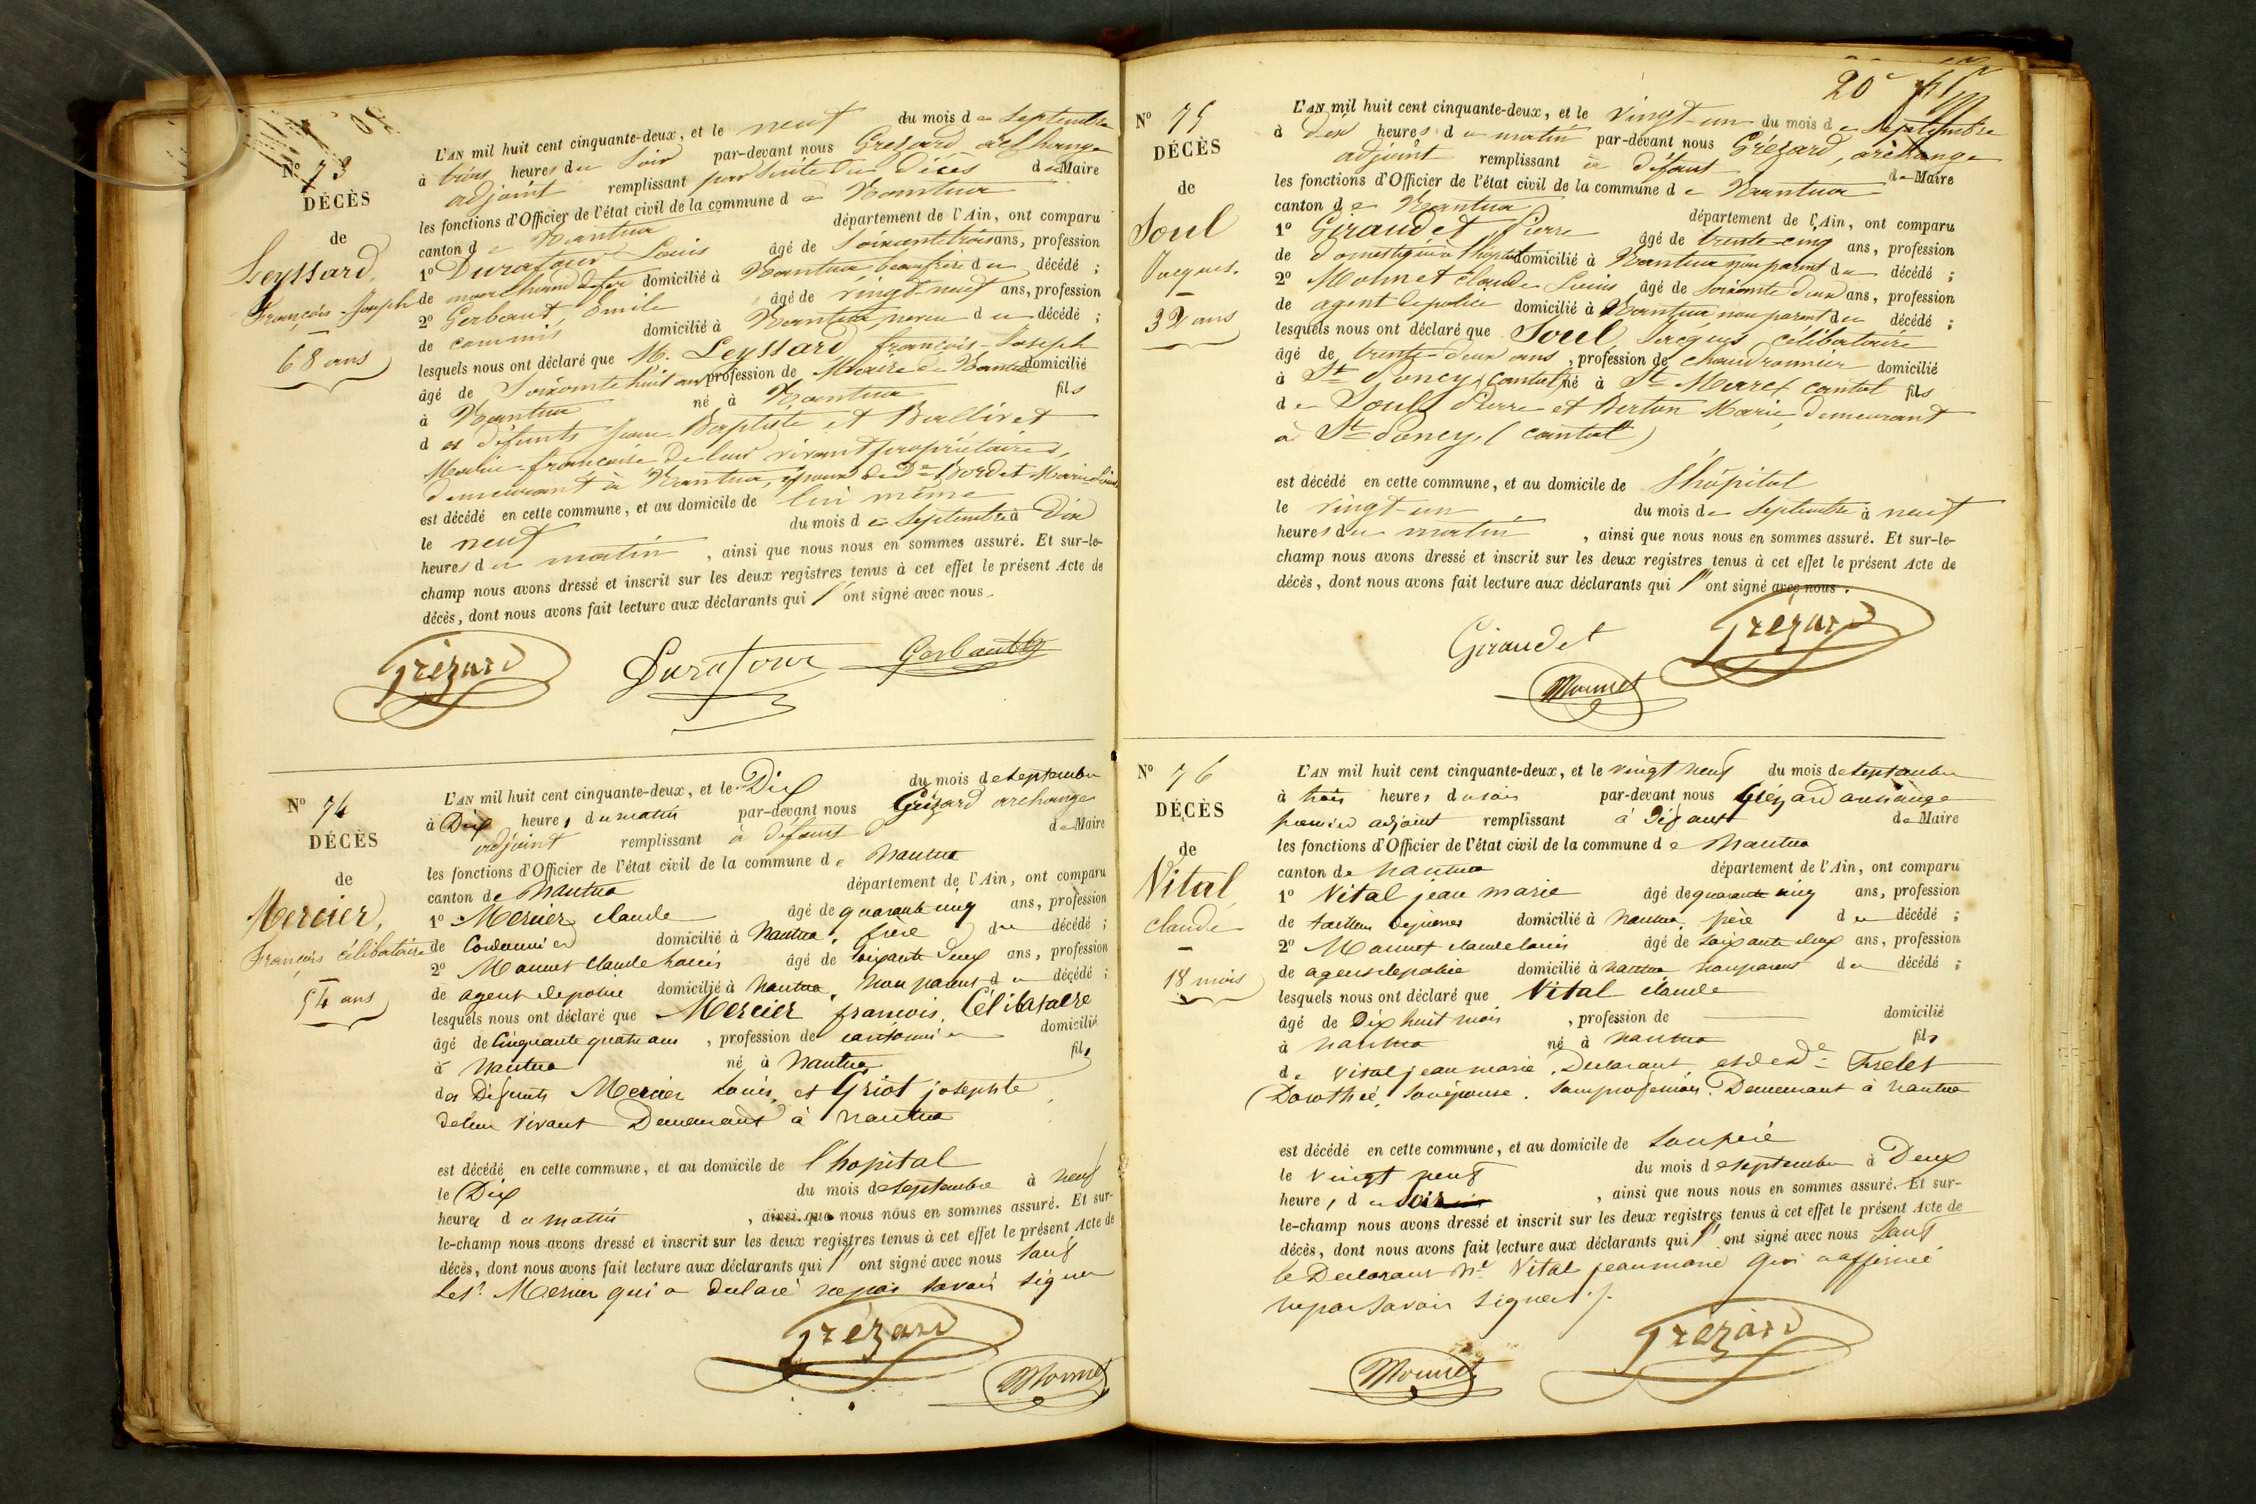 N° 73
DÉCÈS
de
Leyssard,
François-Joseph
68 ans
L'AN mil huit cent cinquante-deux, et le neuf du mois de Septembre
à trois heures du Soir par-devant nous Grézard archange
adjoint remplissant par Suite du décès de Maire
les fonctions d'Officier de l'état civil de la commune de Nantua
canton de Nantua département de l'Ain, ont comparu
1° Duratour Louis âgé de Soixante trois ans, profession
de marchand de fer domicilié à Nantua, beau frère du décédé ;
2° Gerbaut, Emile âgé de vingt-neuf ans, profession
de commis domicilié à Nantua, neveu du décédé ;
lesquels nous ont déclaré que M. Leyssard françois-Joseph
âgé de Soixante huit ans profession de Maire de Nantua domicilié
à Nantua né à Nantua fils
des défunts Jean-Baptiste et Ballivet
Marie-françoise de leur vivant propriétaires,
demeurant à Nantua, époux de De Bordet Marie
est décédé en cette commune, et au domicile de lui même
le neuf du mois de Septembre à Dix
heures du matin, ainsi que nous nous en sommes assuré. Et sur-le-
champ nous avons dressé et inscrit sur les deux registres tenus à cet effet le présent Acte de
décès, dont nous avons fait lecture aux déclarants qui l' ont signé avec nous.
Grézard Duratour Gerbault
N° 74
DÉCÈS
de
Mercier,
François célibataire
54 ans
L'AN mil huit cent cinquante-deux, et le Dix du mois de septembre
à Dix heures du matin par-devant nous Grézard archange
adjoint remplissant à défaut de Maire
les fonctions d'Officier de l'état civil de la commune de Nantua
canton de Nantua département de l'Ain, ont comparu
1° Mercier claude âgé de quarante cinq ans, profession
de Cordonnier domicilié à Nantua, frère du décédé ;
2° Monnet Claude Louis âgé de soixante deux ans, profession
de agent de police domicilié à Nantua, non parent du décédé ;
lesquels nous ont déclaré que Mercier françois, Célibataire
âgé de Cinquante quatre ans, profession de cantonnier domicilié
à Nantua né à Nantua fils
des Défunts Mercier Louis, et Griot josephte
de leur vivant Demeurant à Nantua
est décédé en cette commune, et au domicile de l'hopital
le Dix du mois de septembre à neuf
heures du matin, ainsi que nous nous en sommes assuré. Et sur-
le-champ nous avons dressé et inscrit sur les deux registres tenus à cet effet le présent Acte de
décès, dont nous avons fait lecture aux déclarants qui l' ont signé avec nous sauf
le Sr Mercier qui a declaré ne pas savoir signer
Grézard
Monnet
20e
N° 75
DÉCÈS
de
Soul
Jacques.
32 ans
L'AN mil huit cent cinquante-deux, et le vingt-un du mois de Septembre
à dix heures du matin par-devant nous Grézard, archange
adjoint remplissant à défaut de Maire
les fonctions d'Officier de l'état civil de la commune de Nantua
canton de Nantua département de l'Ain, ont comparu
1° Giraudet Pierre âgé de trente-cinq ans, profession
de domestique à l'hopital domicilié à Nantua non parent du décédé ;
2° Monnet claude Louis âgé de soixante deux ans, profession
de agent de police domicilié à Nantua non parent du décédé ;
lesquels nous ont déclaré que Soul Jacques célibataire
âgé de trente-deux ans, profession de chaudronnier domicilié
à St Poncy (cantal) né à St Mary cantal fils
de Soul Pierre et Berton Marie, demeurant
à St Poncy, (cantal)
est décédé en cette commune, et au domicile de l'hôpital
le vingt-un du mois de Septembre à neuf
heures du matin, ainsi que nous nous en sommes assuré. Et sur-le-
champ nous avons dressé et inscrit sur les deux registres tenus à cet effet le présent Acte de
décès, dont nous avons fait lecture aux déclarants qui l' ont signé avec nous.
Giraudet Grézard
Monnet
N° 76
DÉCÈS
de
Vital,
claude
18 mois
L'AN mil huit cent cinquante-deux, et le vingt neuf du mois de septembre
à trois heures du soir par-devant nous Grézard archange
premier adjoint remplissant à défaut de Maire
les fonctions d'Officier de l'état civil de la commune de Nantua
canton de Nantua département de l'Ain, ont comparu
1° Vital jean marie âgé de quarante cinq ans, profession
de tailleur de pierres domicilié à Nantua, père du décédé ;
2° Monnet claude louis âgé de soixante deux ans, profession
de agent de police domicilié à Nantua non parent du décédé ;
lesquels nous ont déclaré que Vital claude
âgé de Dix huit mois, profession de domicilié
à Nantua né à Nantua fils
de Vital jean marie. Declarant et de De
Dorothée, son épouse. sans profession. Demeurant à Nantua
est décédé en cette commune, et au domicile de son père
le vingt neuf du mois de septembre à Deux
heures du soir, ainsi que nous nous en sommes assuré. Et sur-
le-champ nous avons dressé et inscrit sur les deux registres tenus à cet effet le présent Acte de
décès, dont nous avons fait lecture aux déclarants qui l' ont signé avec nous Sauf
le Declarant Vital jean marie qui a affirmé
ne pas savoir signer.
Grézard
Monnet